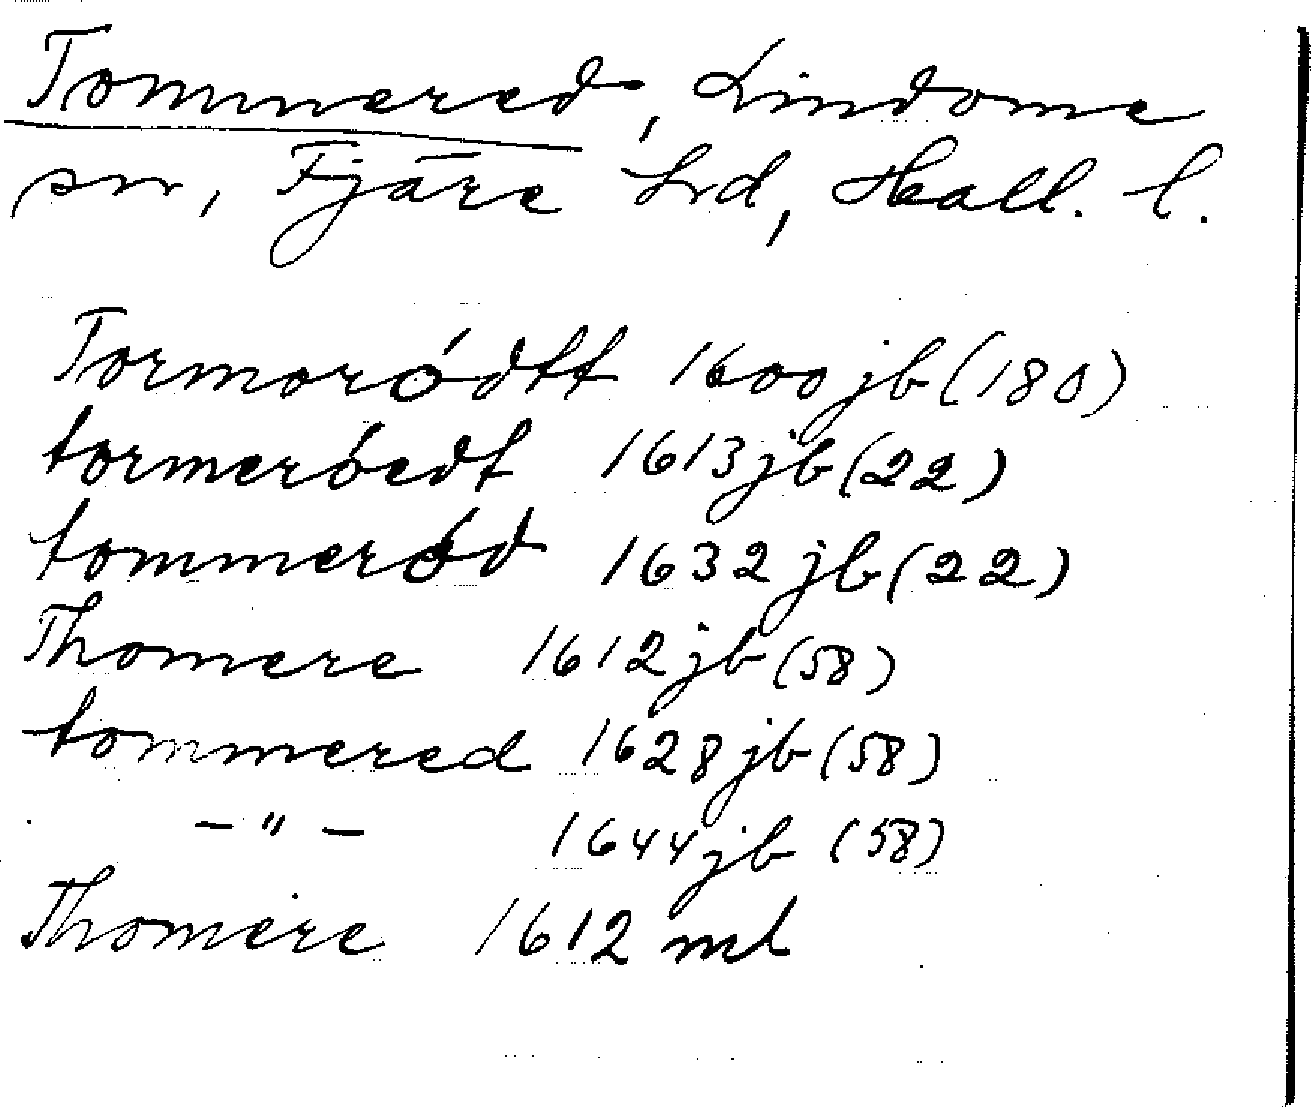 Tommered, Lindome
sn, Fjäre hd, Hall. l.
Tormoródtt 1600 jb (180)
tormeróedt 1613 jb (22)
tommeród 1632 jb (22)
Thomere 1612 jb (58)
tommered 1628 jb (58)
– " – 1644 jb (58)
Thomere 1612 ml